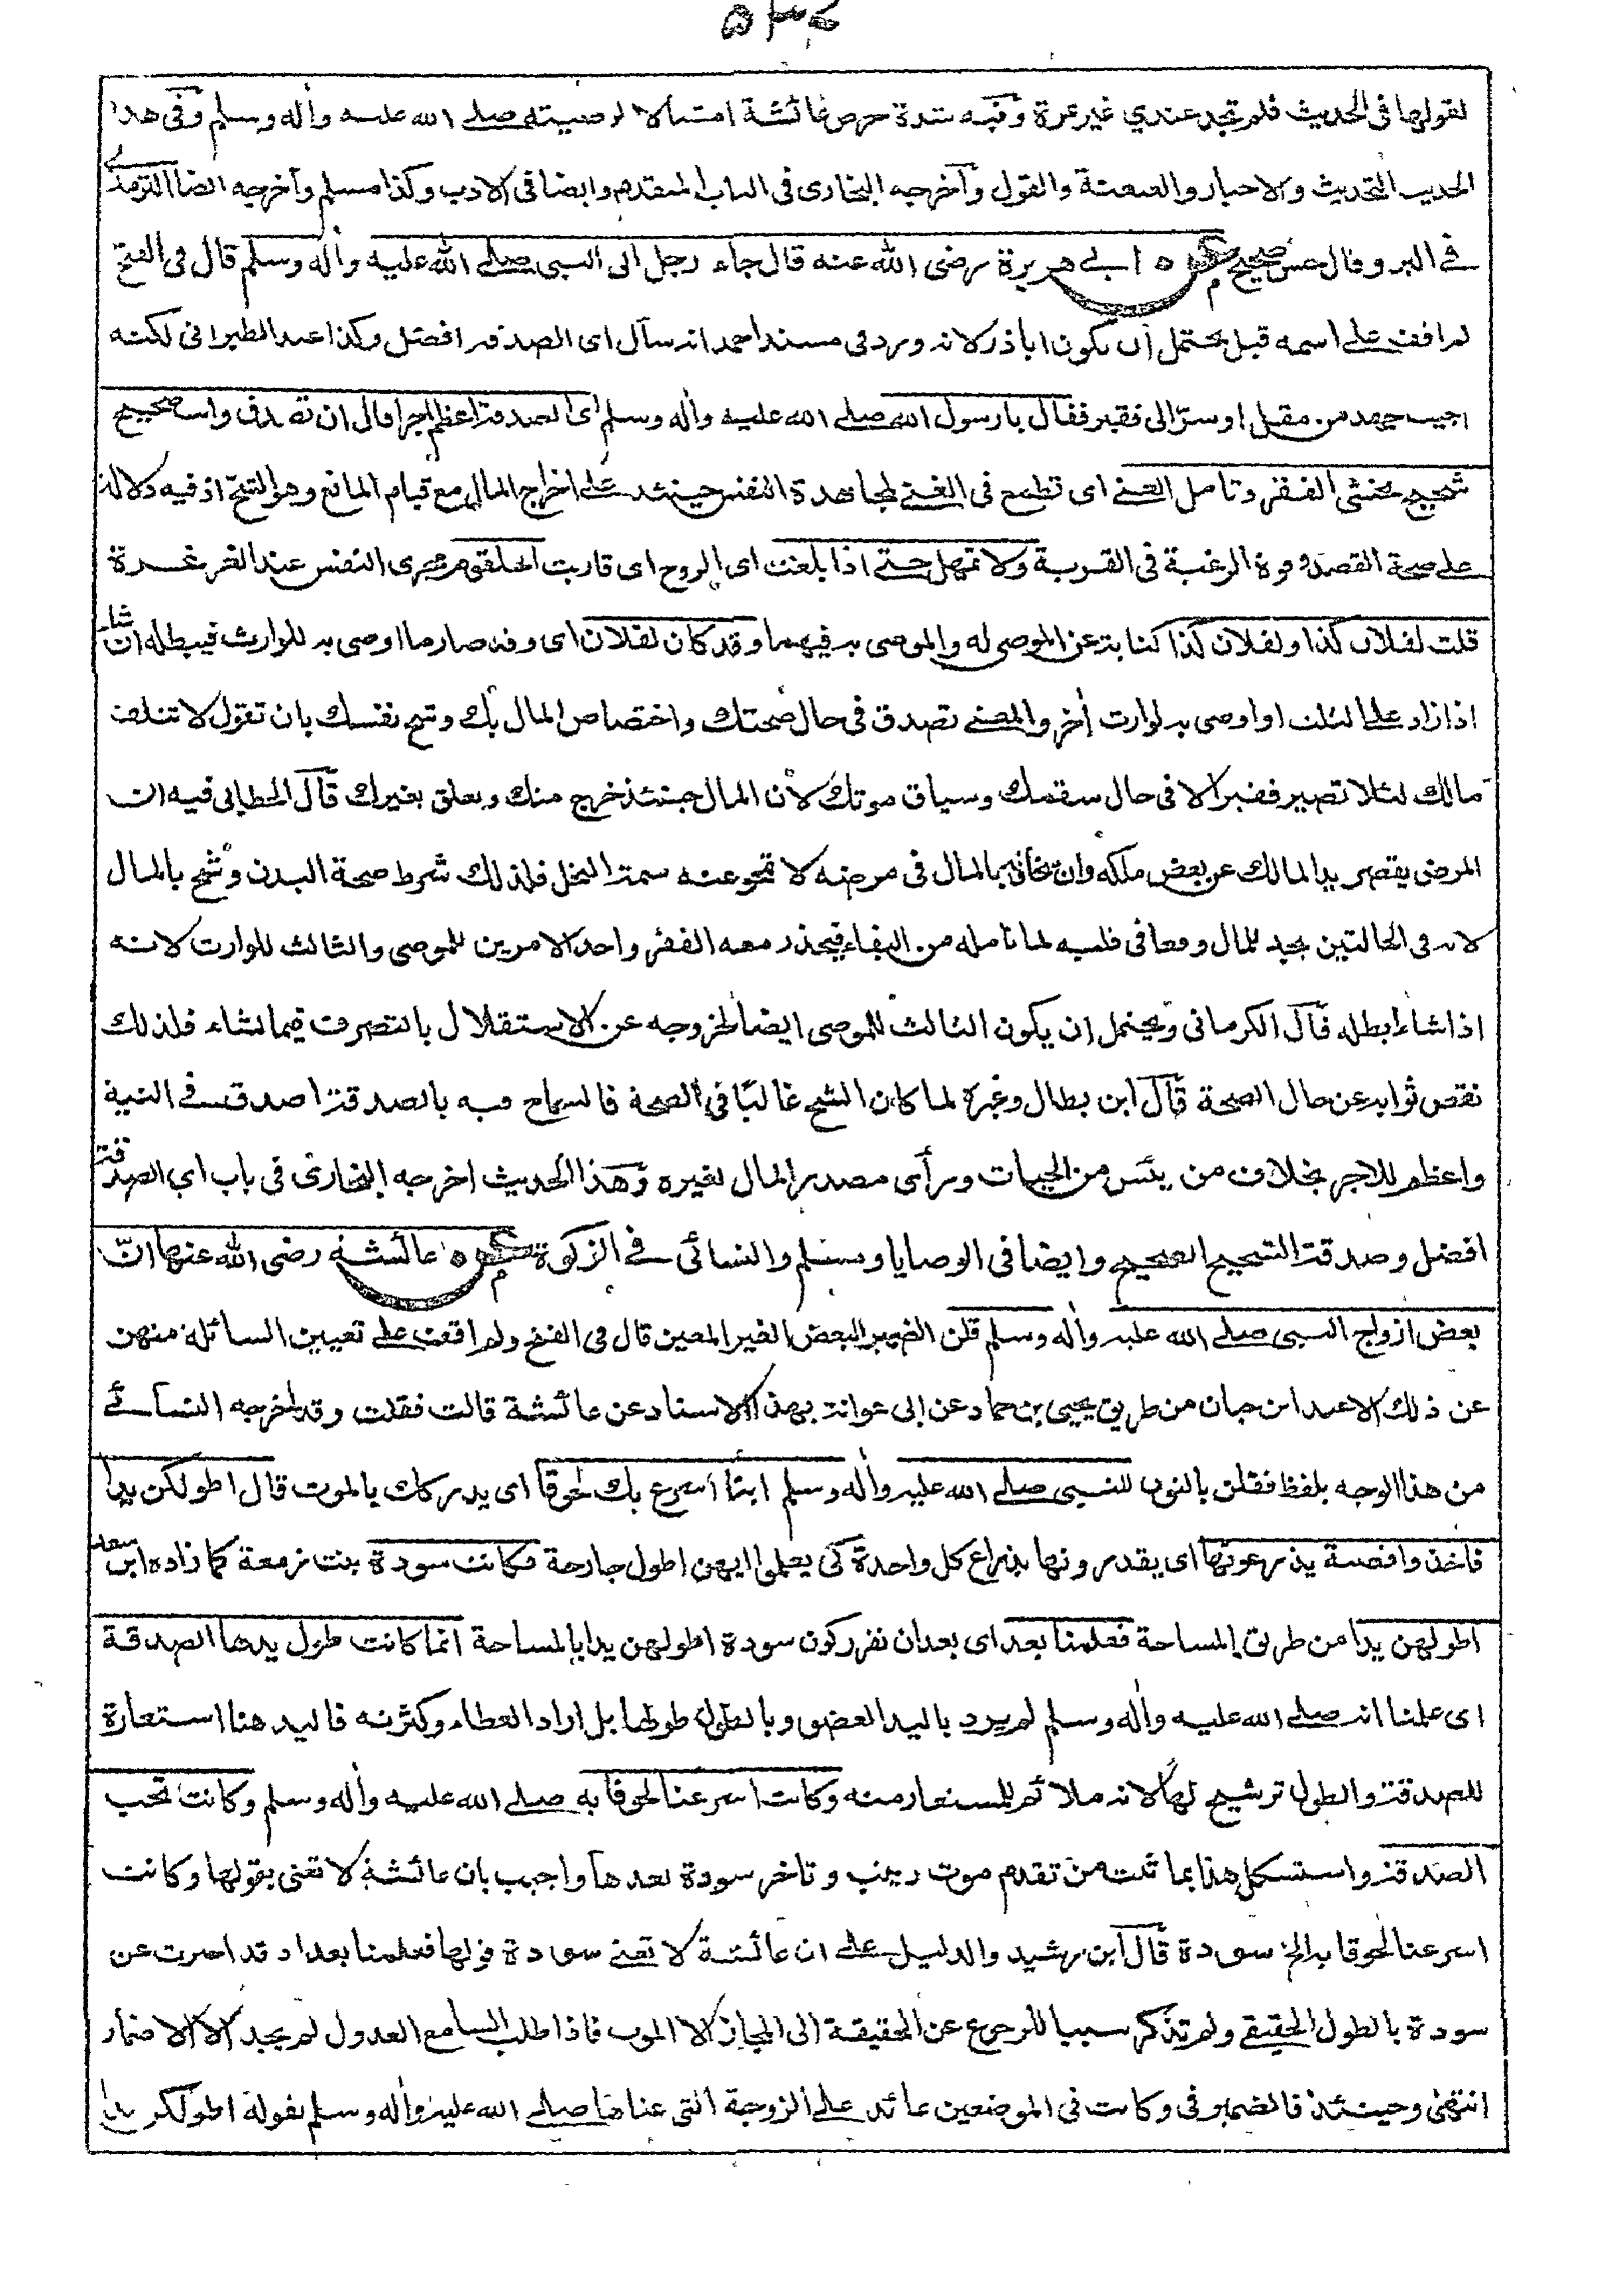 لقولها فى الحديث فلم تجد عندي غير تمرة وفيه شدة حرص عائشة امتثالا لوصيته صلے الله عليه واٰله وسلم وفى هذا
الحديث التحديث والاخبار والعنعنة والقول وأخرجه البخارى فى الباب المتقدم وايضا فى الادب وكذا مسلم وأخرجه ايضا الترمذے
فے البر وقال حسن صحيح ابے هريرة رضى الله عنه قال جاء رجل الى النبى صلے الله عليه واٰله وسلم قال فى الفتح
لم اقف علے اسمه قيل يحتمل ان يكون اباذر لانه ورد فى مسند احمد انه سأل اى الصدقة افضل وكذا عند الطبرانى لكنه
اجيب جهد من مقل او سرّ الى فقير فقال يا رسول الله صلے الله عليه واٰله وسلم اى الصدقة اعظم اجرا قال ان تصدق وانت صحيح
شحيح تخشى الفقر وتأمل الغنے اى تطمع فى الغنے لمجاهدة النفس حينئذ علے اخراج المال مع قيام المانع وهو الشحّ اذ فيه دلالة
علے صحة القصد وقوة الرغبة فى القربة ولا تمهل حتے اذا بلغت اى الروح اى قاربت الحلقوم مجرى النفس عند الغرغرة
قلت لفلان كذا ولفلان كذا كناية عن الموصى له والموصى به فيهما وقد كان لفلان اى وقد صار ما اوصى به للوارث فيبطله ان شاء
اذا زاد علے الثلث او اوصى به لوارث اٰخر والمعنے تصدق فى حال صحتك واختصاص المال بك وشح نفسك بان تقول لا تتلف
مالك لئلا تصير فقيرا لا فى حال سقمك وسياق موتك لأن المال حينئذ خرج منك وتعلق بغيرك قال الخطابى فيه ان
المرض يقصر يد المالك عن بعض ملكه وان سخائه بالمال فى مرضه لا تمحو عنه سمة البخل فلذلك شرط صحة البدن وشح بالمال
لانه فى الحالتين يجد للمال وقعا فى قلبه لما نامله من البقاء فيحذر معه الفقر واحد الامرين للموصى والثالث للوارث لانه
اذا شاء ابطله قال الكرمانى ويحتمل ان يكون الثالث للموصى ايضا لخروجه عن الاستقلال بالتصرف فيما شاء فلذلك
نقص ثوابه عن حال الصحة قال ابن بطال وغيره لما كان الشح غالبًا فى الصحة فالسماح فيه بالصدقة اصدق فے النية
واعظم للاجر بخلاف من يئس من الحيات ورأى مصير المال لغيره وهذا الحديث اخرجه البخارى فى باب اي الصدقة
افضل وصدقة الشحيح الصحيح وايضا فى الوصايا ومسلم والنسائى فے الزكوة عائشة رضى الله عنها انّ
بعض ازواج النبى صلے الله عليه واٰله وسلم قلن الضمير للبعض الغير المعين قال فى الفتح ولم اقف علے تعيين السائلة منهن
عن ذلك الا عند ابن حبان من طريق يحيى بن حماد عن ابى عوانة بهذا الاسناد عن عائشة قالت فقلت وقد اخرجه النسائے
من هذا الوجه بلفظ فقلن بالنون للنبى صلے الله عليه واٰله وسلم اينا اسرع بك لحوقا اى يدركك بالموت قال اطولكن يدا
فاخذوا قصبة يذرعونها اى يقدرونها بذراع كل واحدة كى يعلموا ايهن اطول جارحة فكانت سودة بنت زمعة كما زاده ابن سعد
اطولهن يدا من طريق المساحة فعلمنا بعد اى بعد ان تقرر كون سودة اطولهن يدا بالمساحة انما كانت طول يدها الصدقة
اى علمنا انه صلے الله عليه واٰله وسلم لم يرد باليد العضو وبالطول طولها بل اراد العطاء وكثرته فاليد هنا استعارة
للصدقة والطول ترشيح لها لانه ملائم للمستعار منه وكانت اسرعنا لحوقا به صلے الله عليه واٰله وسلم وكانت تحب
الصدقة واستشكل هذا بما ثبت من تقدم موت زينب وتاخر سودة بعدها واجيب بان عائشة لا تعنى بقولها وكانت
اسرعنا لحوقا به الخ سودة قال ابن رشيد والدليل علے ان عائشة لا تعنے سودة قولها فعلمنا بعد اذ قد اخبرت عن
سودة بالطول الحقيقے ولم تذكر سببا للرجوع عن الحقيقة الى المجاز الا الموت فاذا طلب السامع العدول لم يجد الا الاضمار
انتهى وحينئذ فالضمير فى وكانت فى الموضعين عائد علے الزوجة التى عناها صلے الله عليه واٰله وسلم بقوله اطولكن يدا